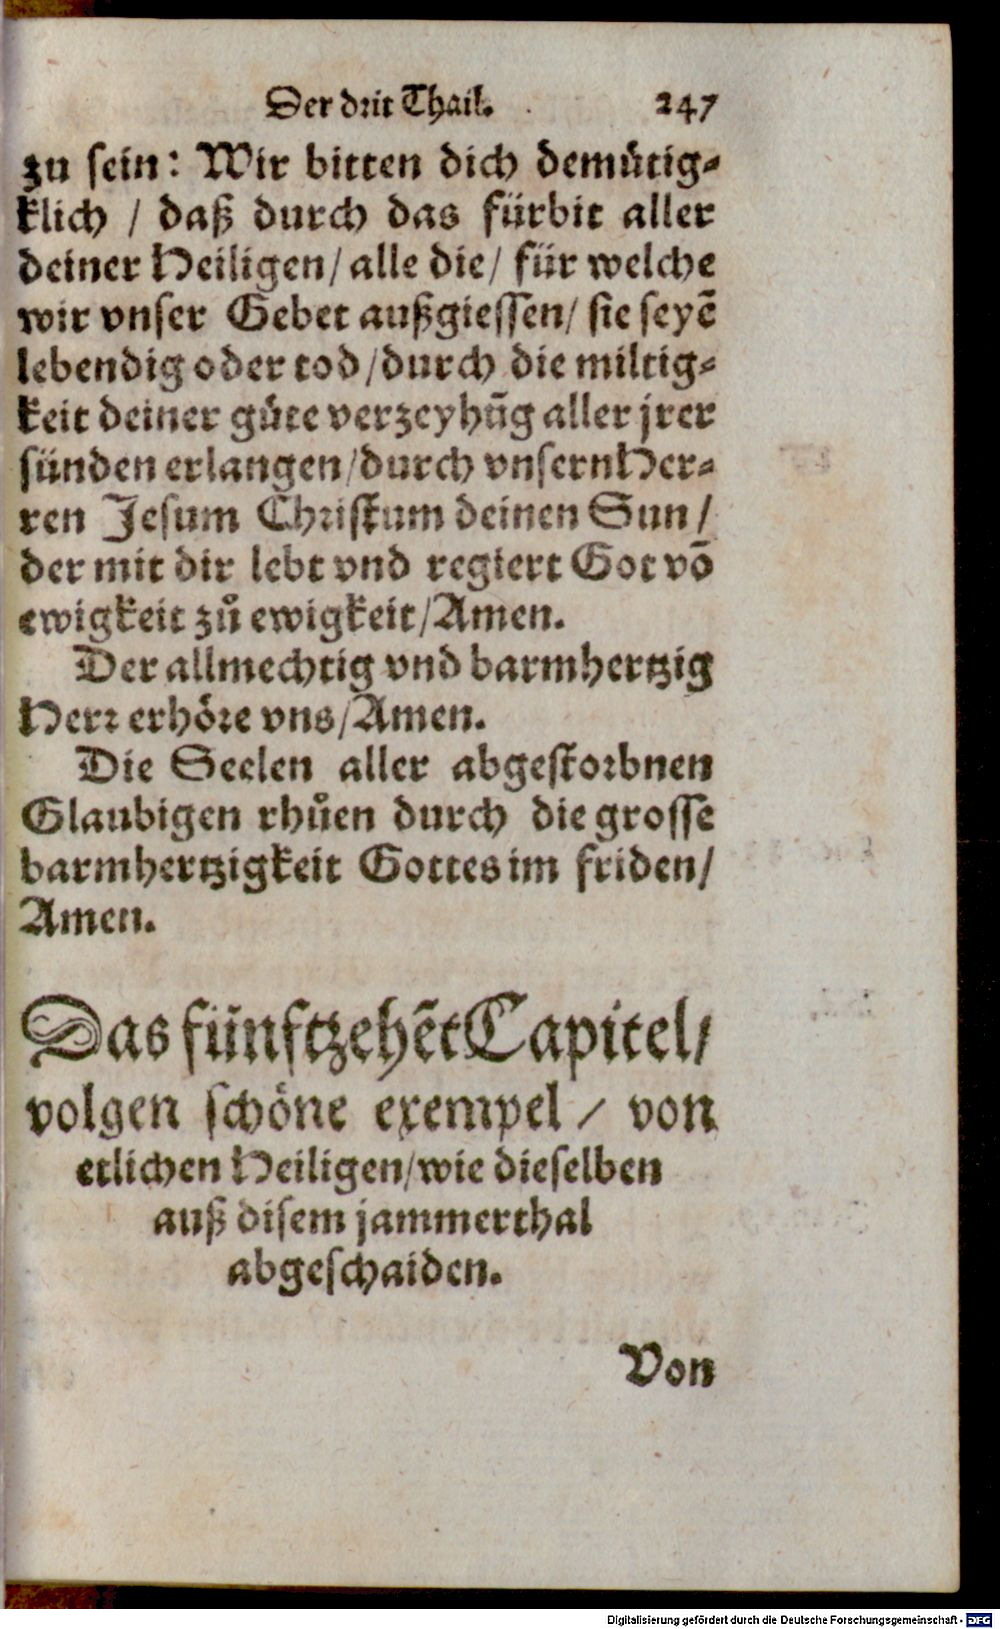 Der drit Thail. 247
zu sein: Wir bitten dich demütig-
klich / daß durch das fürbit aller
deiner Heiligen/ alle die/ für welche
wir vnser Gebet außgiessen/ sie seyē
lebendig oder tod/durch die miltig-
keit deiner güte verzeyhūg aller jrer
sünden erlangen/durch vnsern Her-
ren Jesum Christum deinen Sun/
der mit dir lebt vnd regiert Got vō
ewigkeit zů ewigkeit/Amen.
Der allmechtig vnd barmhertzig
Herr erhöre vns/Amen.
Die Seelen aller abgestorbnen
Glaubigen rhůen durch die grosse
barmhertzigkeit Gottes im friden/
Amen.
Das fünftzehēt Capitel/
volgen schöne exempel / von
etlichen Heiligen/wie dieselben
auß disem jammerthal
abgeschaiden.
Von
Digitalisierung gefördert durch die Deutsche Forschungsgemeinschaft - DFG